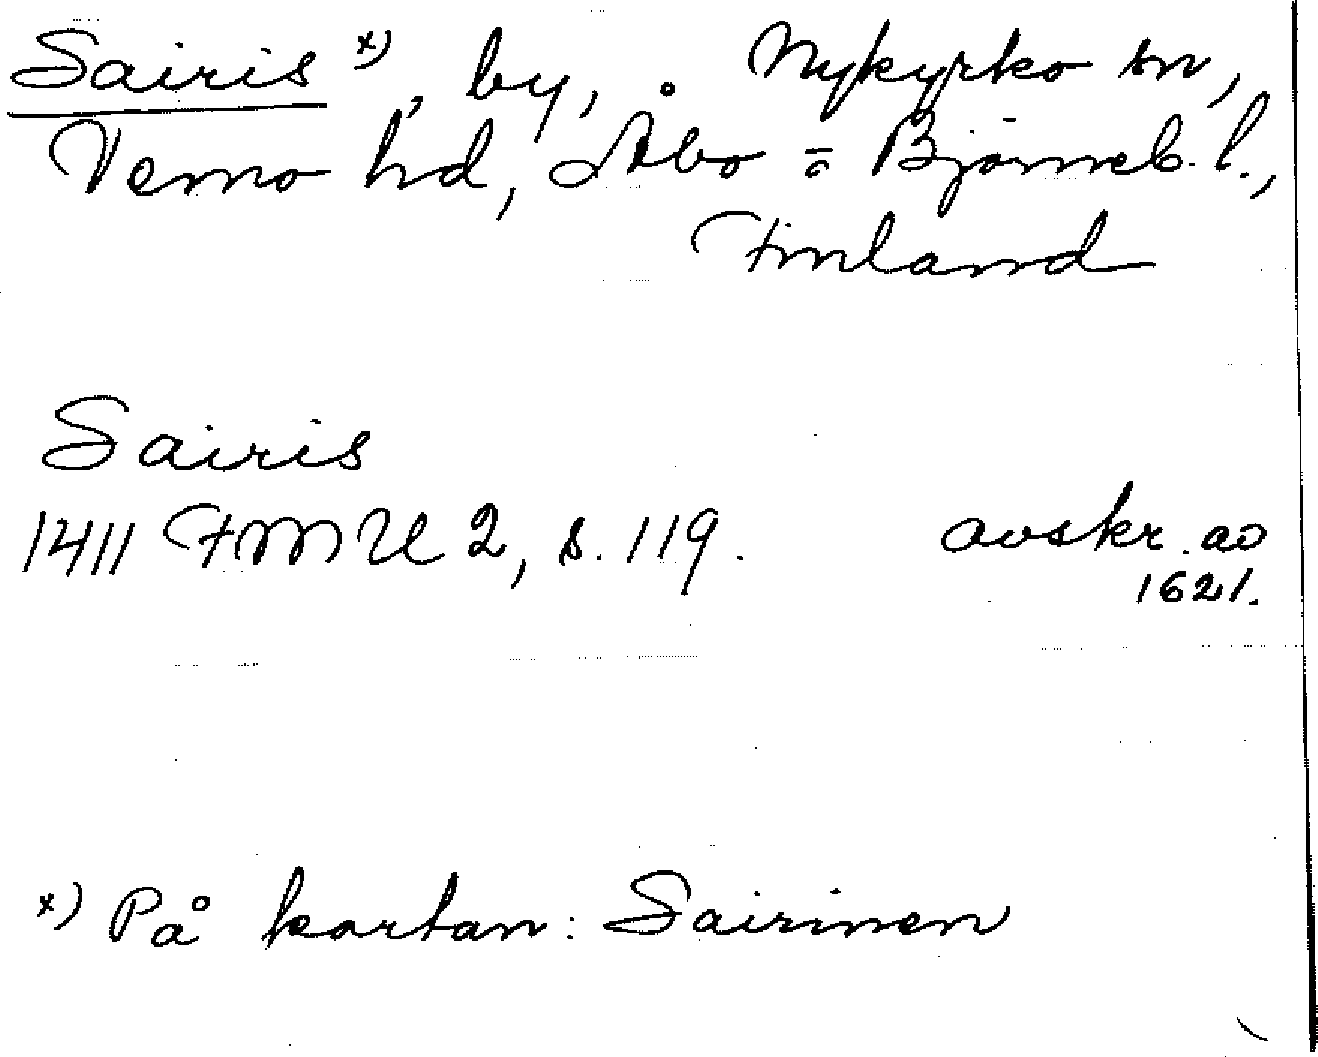 Sairis x), by, Nykyrko sn,
Vemo hd, Åbo = Björneb. l.,
Finland
Sairis
1411 FMU 2, s. 119. avskr. ao
1621.
x) På kartan: Sairinen